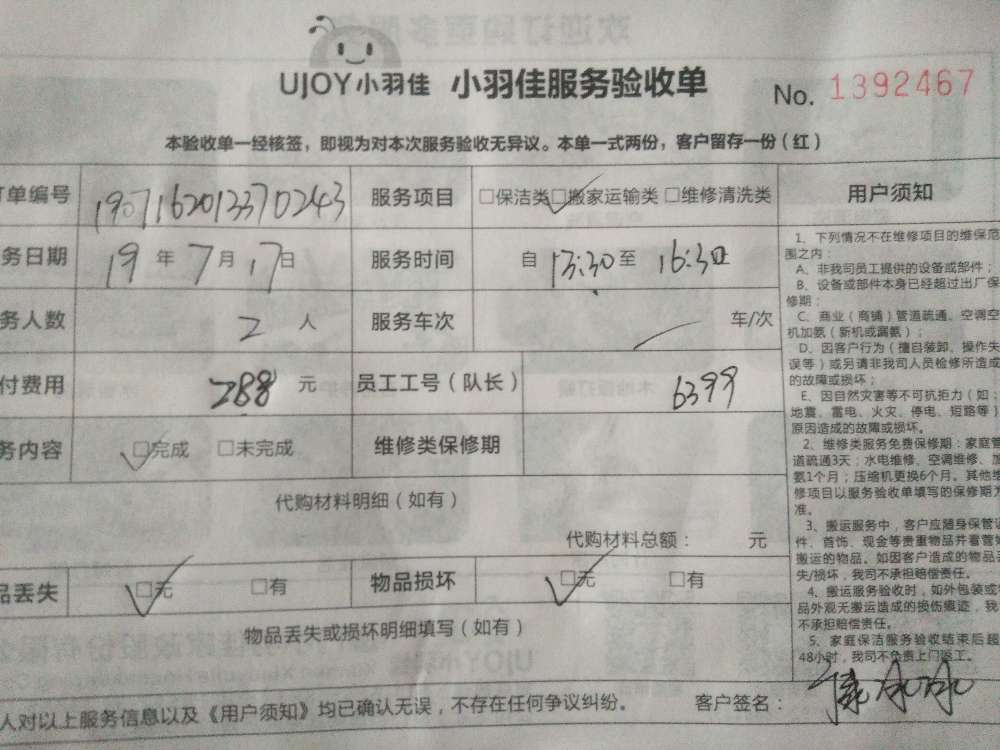 UJOY小羽佳 小羽佳服务验收单 No. 1392467
本验收单一经核签，即视为对本次服务验收无异议。本单一式两份，客户留存一份（红）
订单编号 1907162013370243 服务项目 □保洁类 □搬家运输类 □维修清洗类
务日期 19 年 7 月 17 日 服务时间 自 13:30 至 16:30
务人数 2 人 服务车次 车/次
付费用 288 元 员工工号（队长） 6399
务内容 □完成 □未完成 维修类保修期
代购材料明细（如有）
代购材料总额： 元
品丢失 □无 □有 物品损坏 □无 □有
物品丢失或损坏明细填写（如有）
人对以上服务信息以及《用户须知》均已确认无误，不存在任何争议纠纷。 客户签名：
用户须知
1、下列情况不在维修项目的维保范
围之内：
A、非我司员工提供的设备或部件；
B、设备或部件本身已经超过出厂保
修期；
C、商业（商铺）管道疏通、空调空
机加氨（新机或漏氨）；
D、因客户行为（擅自装卸、操作失
误等）或另请非我司人员检修所造成
的故障或损坏；
E、因自然灾害等不可抗拒力（如：
地震、雷电、火灾、停电、短路等）
原因造成的故障或损坏。
2、维修类服务免费保修期：家庭管
道疏通3天；水电维修、空调维修、加
氨1个月；压缩机更换6个月。其他维
修项目以服务验收单填写的保修期为
准。
3、搬运服务中，客户应随身保管证
件、首饰、现金等贵重物品并看管好
搬运的物品。如因客户造成的物品丢
失/损坏，我司不承担赔偿责任。
4、搬运服务验收时，如外包装或物
品外观无搬运造成的损伤痕迹，我
不承担赔偿责任。
5、家庭保洁服务验收结束后超
48小时，我司不负责上门返工。